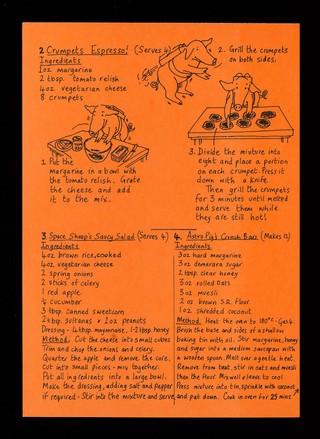 2 Crumpets Espresso! (Serves 4)
Ingredients
1oz margarine
2 tbsp. tomato relish
4oz vegetarian cheese
8 crumpets
2. Grill the crumpets
on both sides.
1. Put the
margarine in a bowl with
the tomato relish. Grate
the cheese and add
it to the mix.
3. Divide the mixture into
eight and place a portion
on each crumpet. Press it
down with a knife.
Then grill the crumpets
for 3 minutes until melted
and serve them while
they are still hot!
3 Space Sheep's Saucy Salad (Serves 4)
Ingredients
4oz brown rice, cooked
4oz vegetarian cheese
2 spring onions
2 sticks of celery
1 red apple
¼ cucumber
3 tbsp canned sweetcorn
2 tbsp sultanas × 2oz peanuts
Dressing - 4 tbsp. mayonnaise, 1-2 tbsp. honey
Method. Cut the cheese into small cubes
Trim and chop the onions and celery.
Quarter the apple and remove the core.
Cut into small pieces - mix together.
Put all ingredients into a large bowl.
Make the dressing, adding salt and pepper
if required - Stir into the mixture and serve
4. Astro Pig's Crunch Bars (Makes 12)
Ingredients
3oz hard margarine
3oz demerara sugar
2 tbsp clear honey
3oz rolled oats
3oz muesli
2 oz brown S.R. flour
1oz shredded coconut
Method. Heat the oven to 180°C - Gas 4
Brush the base and sides of a shallow
baking tin with oil. Stir margarine, honey
and sugar into a medium saucepan with
a wooden spoon. Melt over a gentle heat.
Remove from heat, stir in oats and muesli
then the flour. Mix well & leave to cool.
Press mixture into tin, sprinkle with coconut
and pat down. Cook in oven for 25 mins